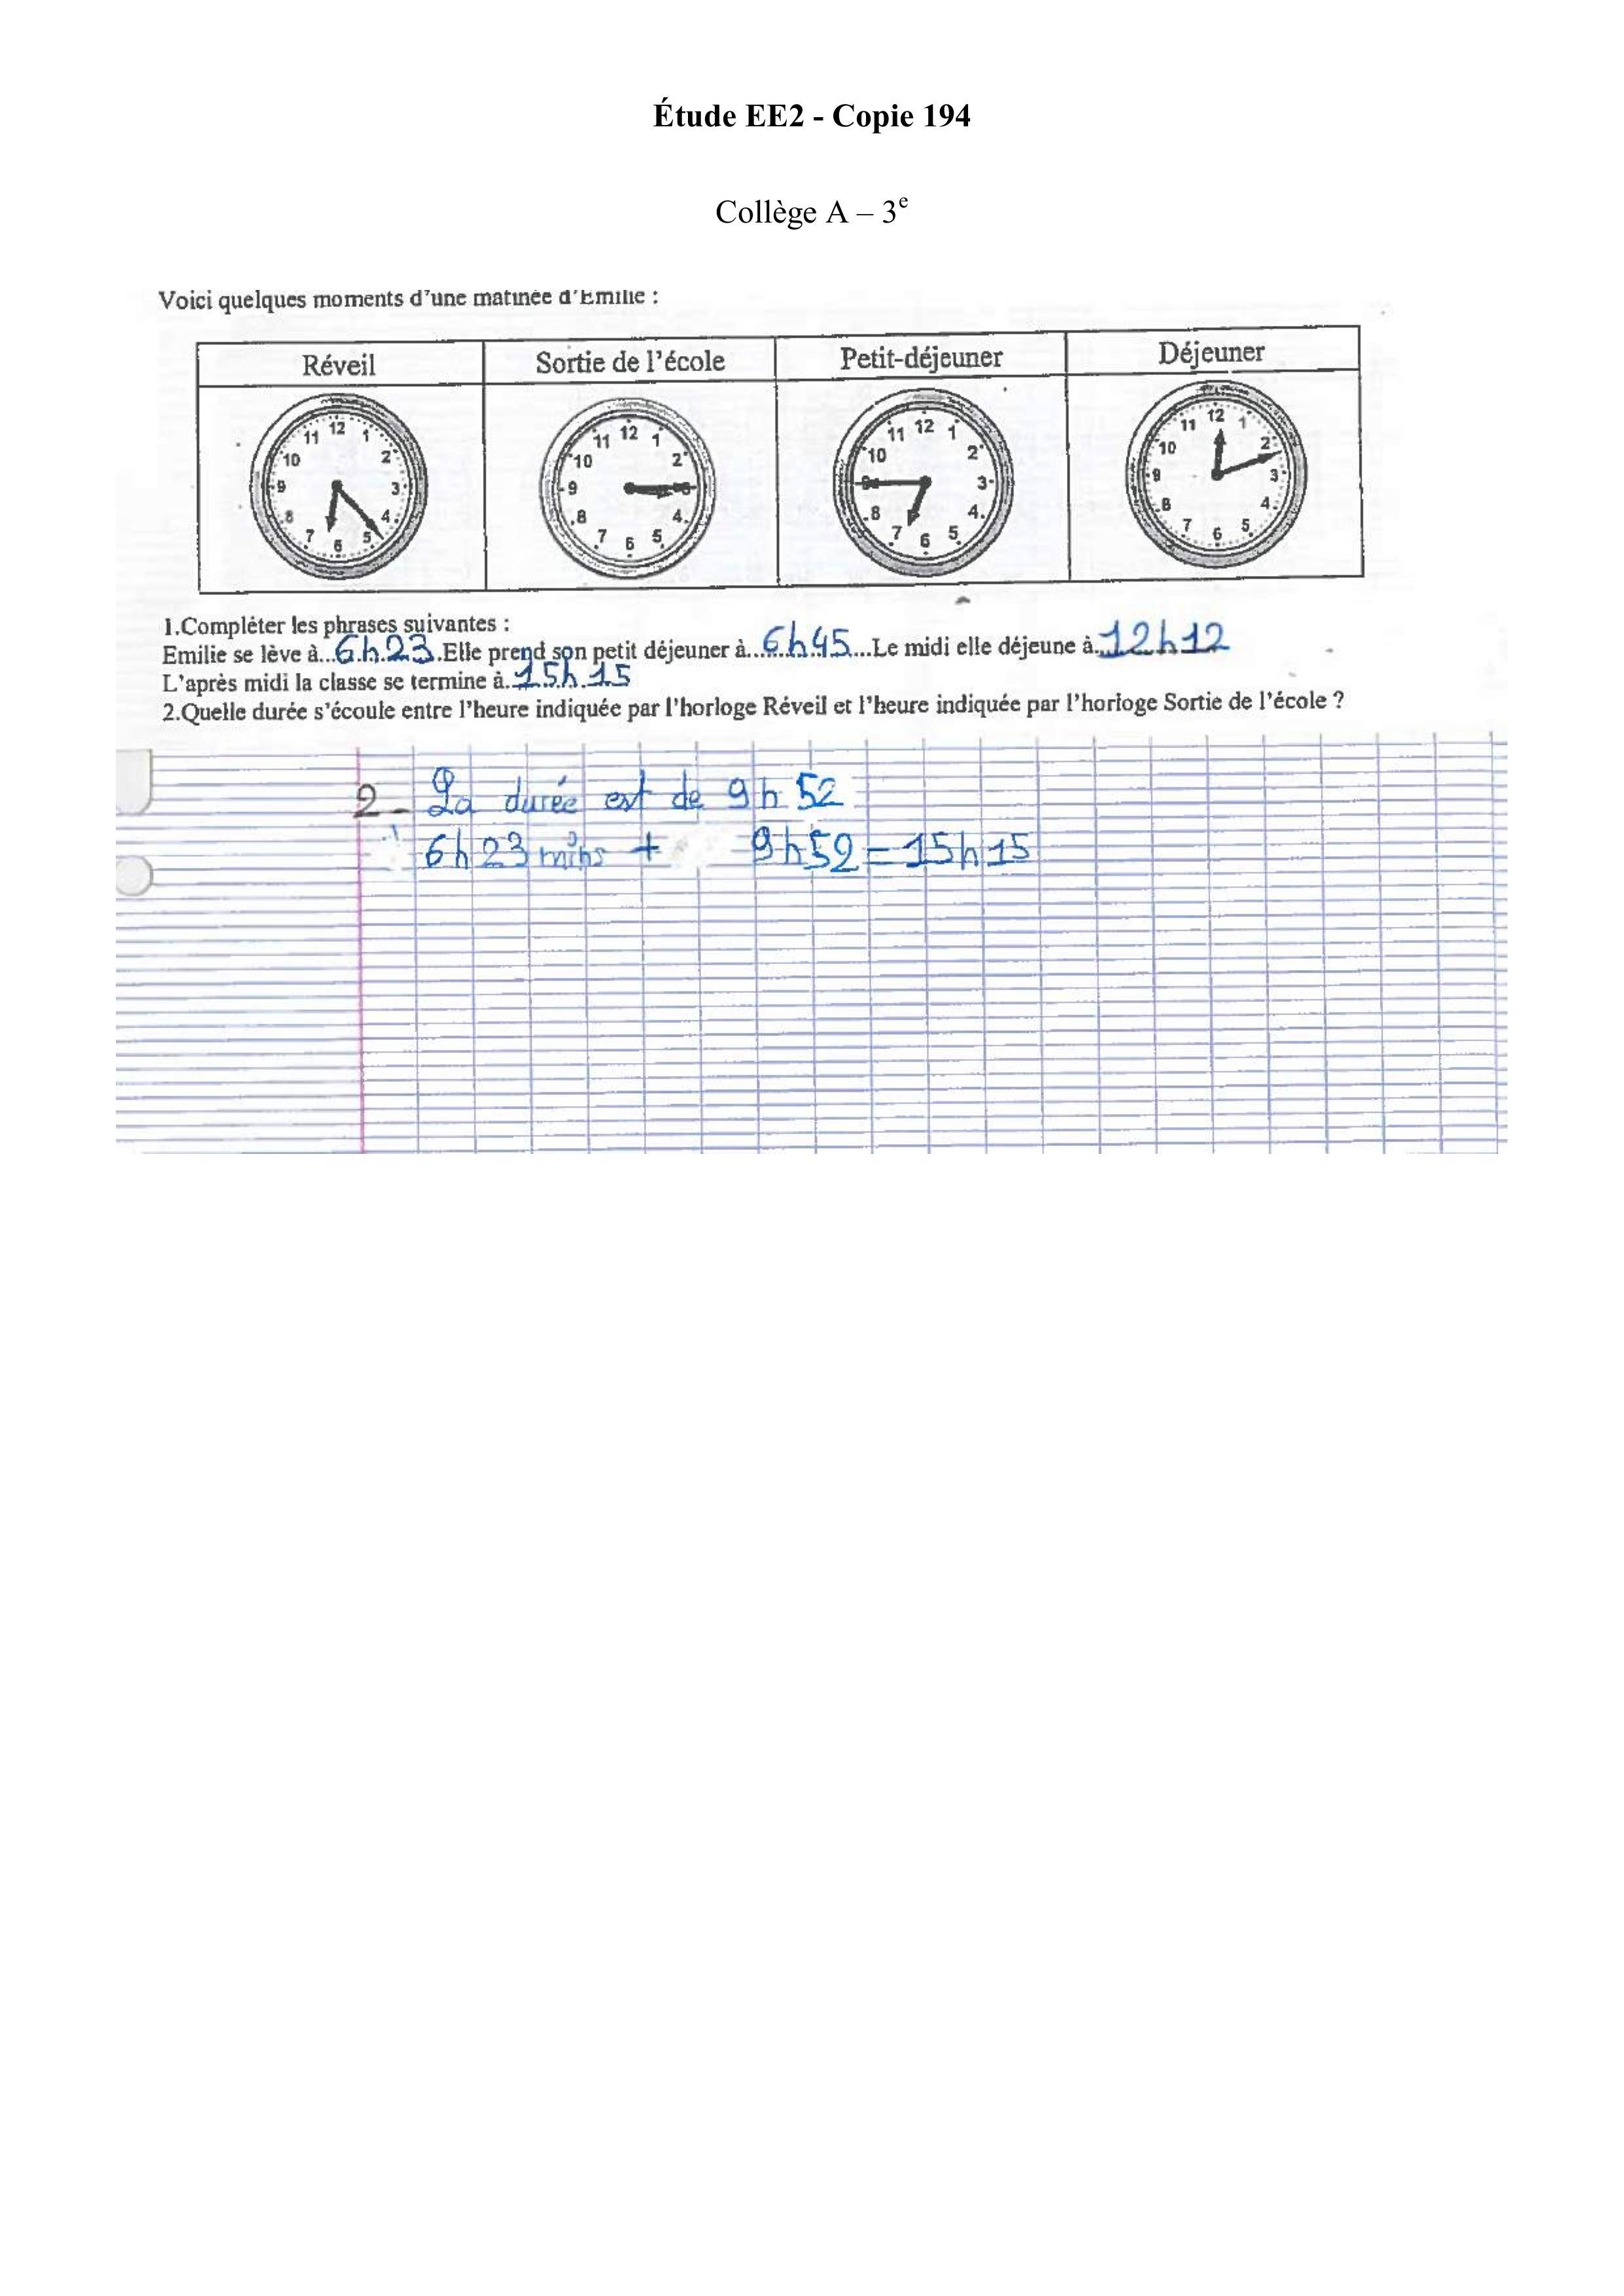 Étude EE2 - Copie 194
Collège A – 3e
Voici quelques moments d'une matinée d'Emilie :
Réveil Sortie de l'école Petit-déjeuner Déjeuner
12 1 2 3 4 5 6 7 8 9 10 11
12 1 2 4 5 6 7 8 9 10 11
12 1 2 3 4 5 6 7 8 10 11
12 1 2 3 4 5 6 7 8 9 10 11
1.Compléter les phrases suivantes :
Emilie se lève à...6h23.Elle prend son petit déjeuner à......6h45...Le midi elle déjeune à..12h12
L'après midi la classe se termine à.15h15
2.Quelle durée s'écoule entre l'heure indiquée par l'horloge Réveil et l'heure indiquée par l'horloge Sortie de l'école ?
2- La durée est de 9h52
6h23 mins + 9h52 = 15h15